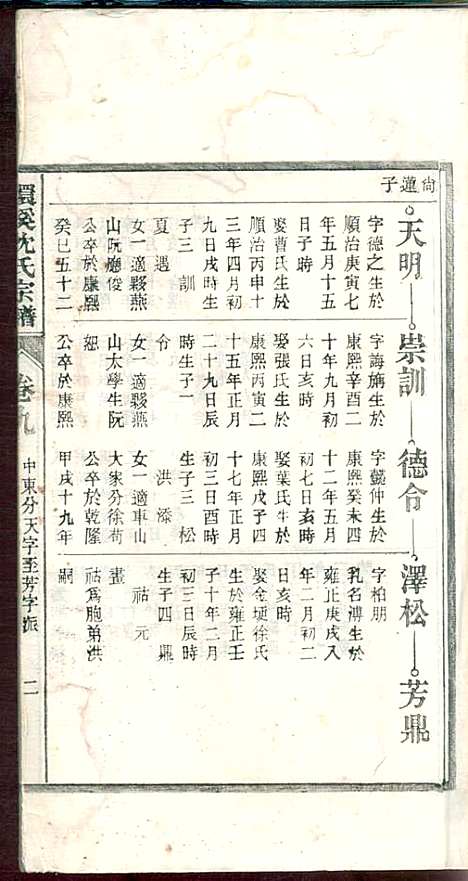 尙蓮子
天明
崇訓
德令
澤松
芳鼎
字德之生於
順治庚寅七
年五月十五
日子時
娶曹氏生於
順治丙申十
三年四月初
九日戌時生
子三 訓
夏 遇
女一適夥燕
山阮廳俊
公卒於康熙
癸巳五十二
字誨旃生於
康熙辛酉二
十年九月初
六日亥時
娶張氏生於
康熙丙寅二
十五年正月
二十九日辰
時生子一
令
女一適夥燕
山太學生阮
恕
公卒於康熙
字懿仲生於
康熙癸未四
十二年五月
初七日亥時
娶葉氏生於
康熙戊子四
十七年正月
初三日酉時
生子三 松
洪 添
女一適車山
大家分徐荀
公卒於乾隆
甲戌十九年
字柏朋
乳名溥生於
雍正庚戌八
年二月初二
日亥時
娶金埂徐氏
生於雍正壬
子十年二月
初三日辰時
生子四 鼎
祜 元
晝
祜爲胞弟洪
嗣
環溪沈氏宗譜
卷九
中東分天字至芳字派
二